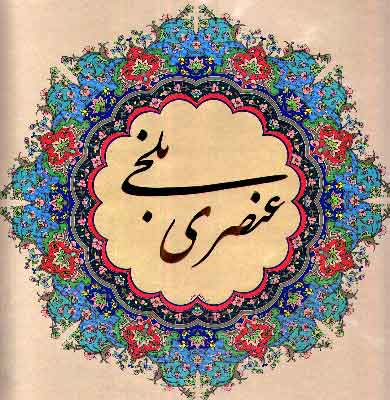 عنصری بلخی